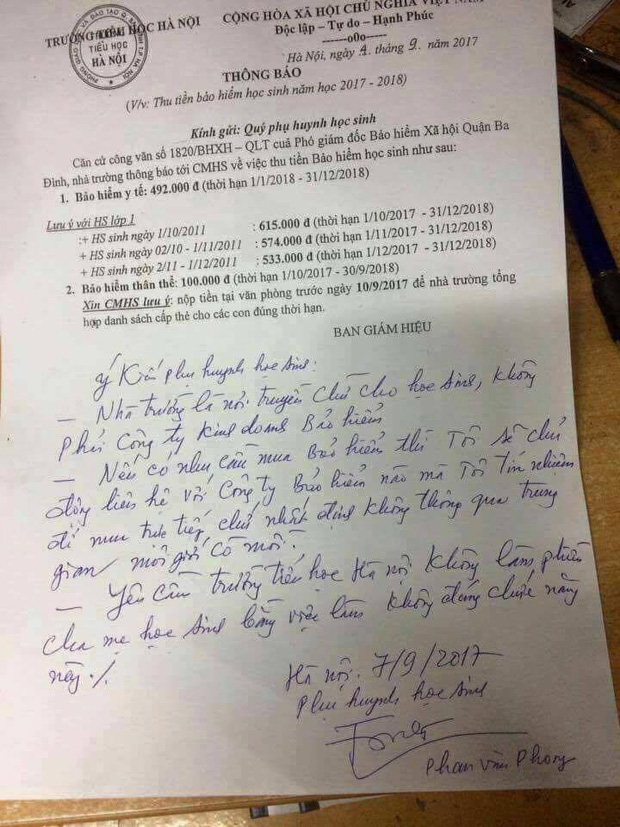 TRƯỜNG TIỂU HỌC HÀ NỘI
CỘNG HÒA XÃ HỘI CHỦ NGHĨA VIỆT NAM
Độc lập – Tự do – Hạnh Phúc
------o0o------
TIỂU HỌC
HÀ NỘI
Hà Nội, ngày 4 tháng 9 năm 2017
THÔNG BÁO
(V/v: Thu tiền bảo hiểm học sinh năm học 2017 - 2018)
Kính gửi: Quý phụ huynh học sinh
Căn cứ công văn số 1820/BHXH – QLT cuả Phó giám đốc Bảo hiểm Xã hội Quận Ba
Đình, nhà trường thông báo tới CMHS về việc thu tiền Bảo hiểm học sinh như sau:
1. Bảo hiểm y tế: 492.000 đ (thời hạn 1/1/2018 - 31/12/2018)
Lưu ý với HS lớp 1
:+ HS sinh ngày 1/10/2011 : 615.000 đ (thời hạn 1/10/2017 - 31/12/2018)
+ HS sinh ngày 02/10 - 1/11/2011 : 574.000 đ (thời hạn 1/11/2017 - 31/12/2018)
+ HS sinh ngày 2/11 - 1/12/2011 : 533.000 đ (thời hạn 1/12/2017 - 31/12/2018)
2. Bảo hiểm thân thể: 100.000 đ (thời hạn 1/10/2017 - 30/9/2018)
Xin CMHS lưu ý: nộp tiền tại văn phòng trước ngày 10/9/2017 để nhà trường tổng
hợp danh sách cấp thẻ cho các con đúng thời hạn.
BAN GIÁM HIỆU
Ý Kiến phụ huynh học sinh:
– Nhà trường là nơi truyền chữ cho học sinh, không
phải Công ty kinh doanh Bảo hiểm
– Nếu có nhu cầu mua Bảo hiểm thì Tôi sẽ chủ
động liên hệ với Công ty Bảo hiểm nào mà Tôi tín nhiệm
để mua trực tiếp chứ nhất định không thông qua trung
gian môi giới cò mồi!
– Yêu cầu trường tiểu học Hà nội không làm phiền
cha mẹ học sinh bằng việc làm không đúng chức năng
này ./.
Hà nội. 7/9/2017
Phụ huynh học sinh
Phan văn Phong